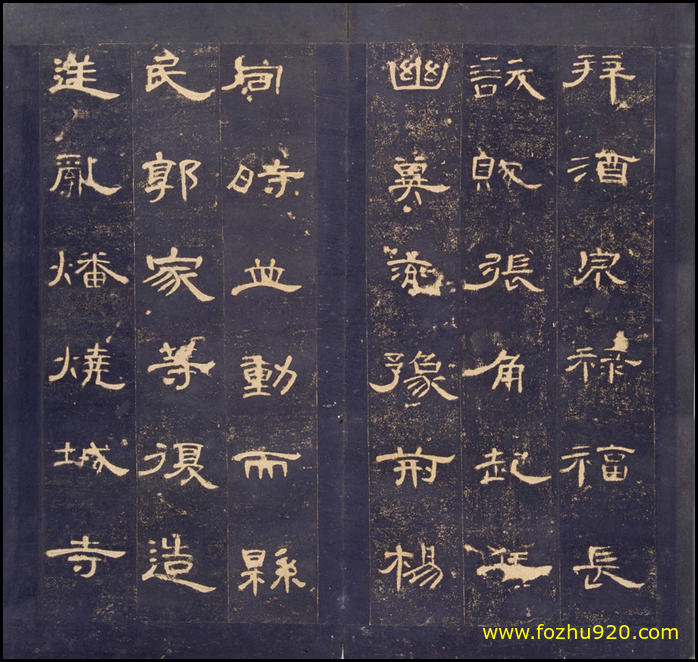 拜酒泉祿福長
訞賊張角起兵
幽冀兗豫荊楊
同時並動而縣
民郭家等復造
逆亂燔燒城寺
www.fozhu920.com